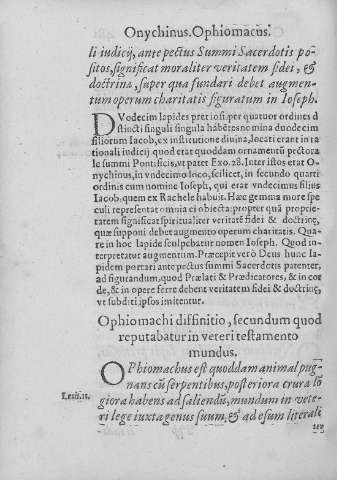 Onychinus. Ophiomacus.
li iudicij, ante pectus Summi Sacerdotis po-
sitos, significat moraliter veritatem fidei, &
doctrina, super qua fundari debet augmen-
tum operum charitatis figuratum in Ioseph.
DVodecim lapides pretiosi per quatuor ordines d
stincti singuli singula habētes nomina duodecim
filiorum Iacob, ex institutione diuina, locati erant in ra
tionali iudicij quod erat quoddam ornamētū pectora
le summi Pontificis, vt patet Exo. 28. Inter istos erat O-
nychinus, in vndecimo loco, scilicet, in secundo quarti
ordinis cum nomine Ioseph, qui erat vndecimus filius
Iacob, quem ex Rachele habuit. Hæc gemma more spe
culi representat omnia ei obiecta: propter quā proprie-
tatem significat spiritualiter veritatē fidei & doctrinę,
quæ supponi debet augmento operum charitatis. Qua-
re in hoc lapide sculpebatur nomen Ioseph. Quod in-
terpretatur augmentum. Præcepit verò Deus hunc la-
pidem portari ante pectus summi Sacerdotis patenter,
ad figurandum, quod Prælati & Prædicatores, & in cor
de, & in opere ferre debent veritatem fidei & doctrinę,
vt subditi ipsos imitentur.
Ophiomachi diffinitio, secundum quod
reputabatur in veteri testamento
mundus.
OPhiomachus est quoddam animal pug-
nans cū serpentibus, posteriora crura lō
Leui. 11.
giora habens ad saliendū, mundum in vete-
ri lege iuxta genus suum, & ad esum literali